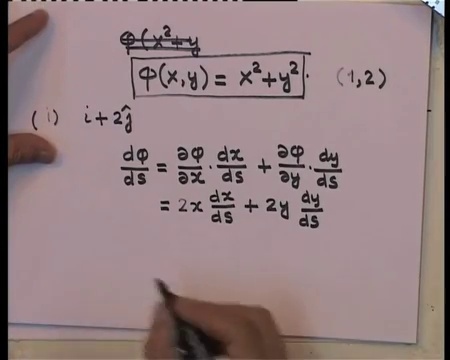 φ(x²+y
φ(x,y) = x²+y². (1,2)
(i) i+2ĵ
dφ/ds = ∂φ/∂x · dx/ds + ∂φ/∂y · dy/ds
= 2x dx/ds + 2y dy/ds